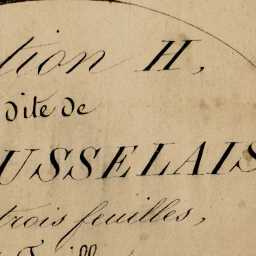 tion H,
dite de
USSELAIS
trois feuilles,